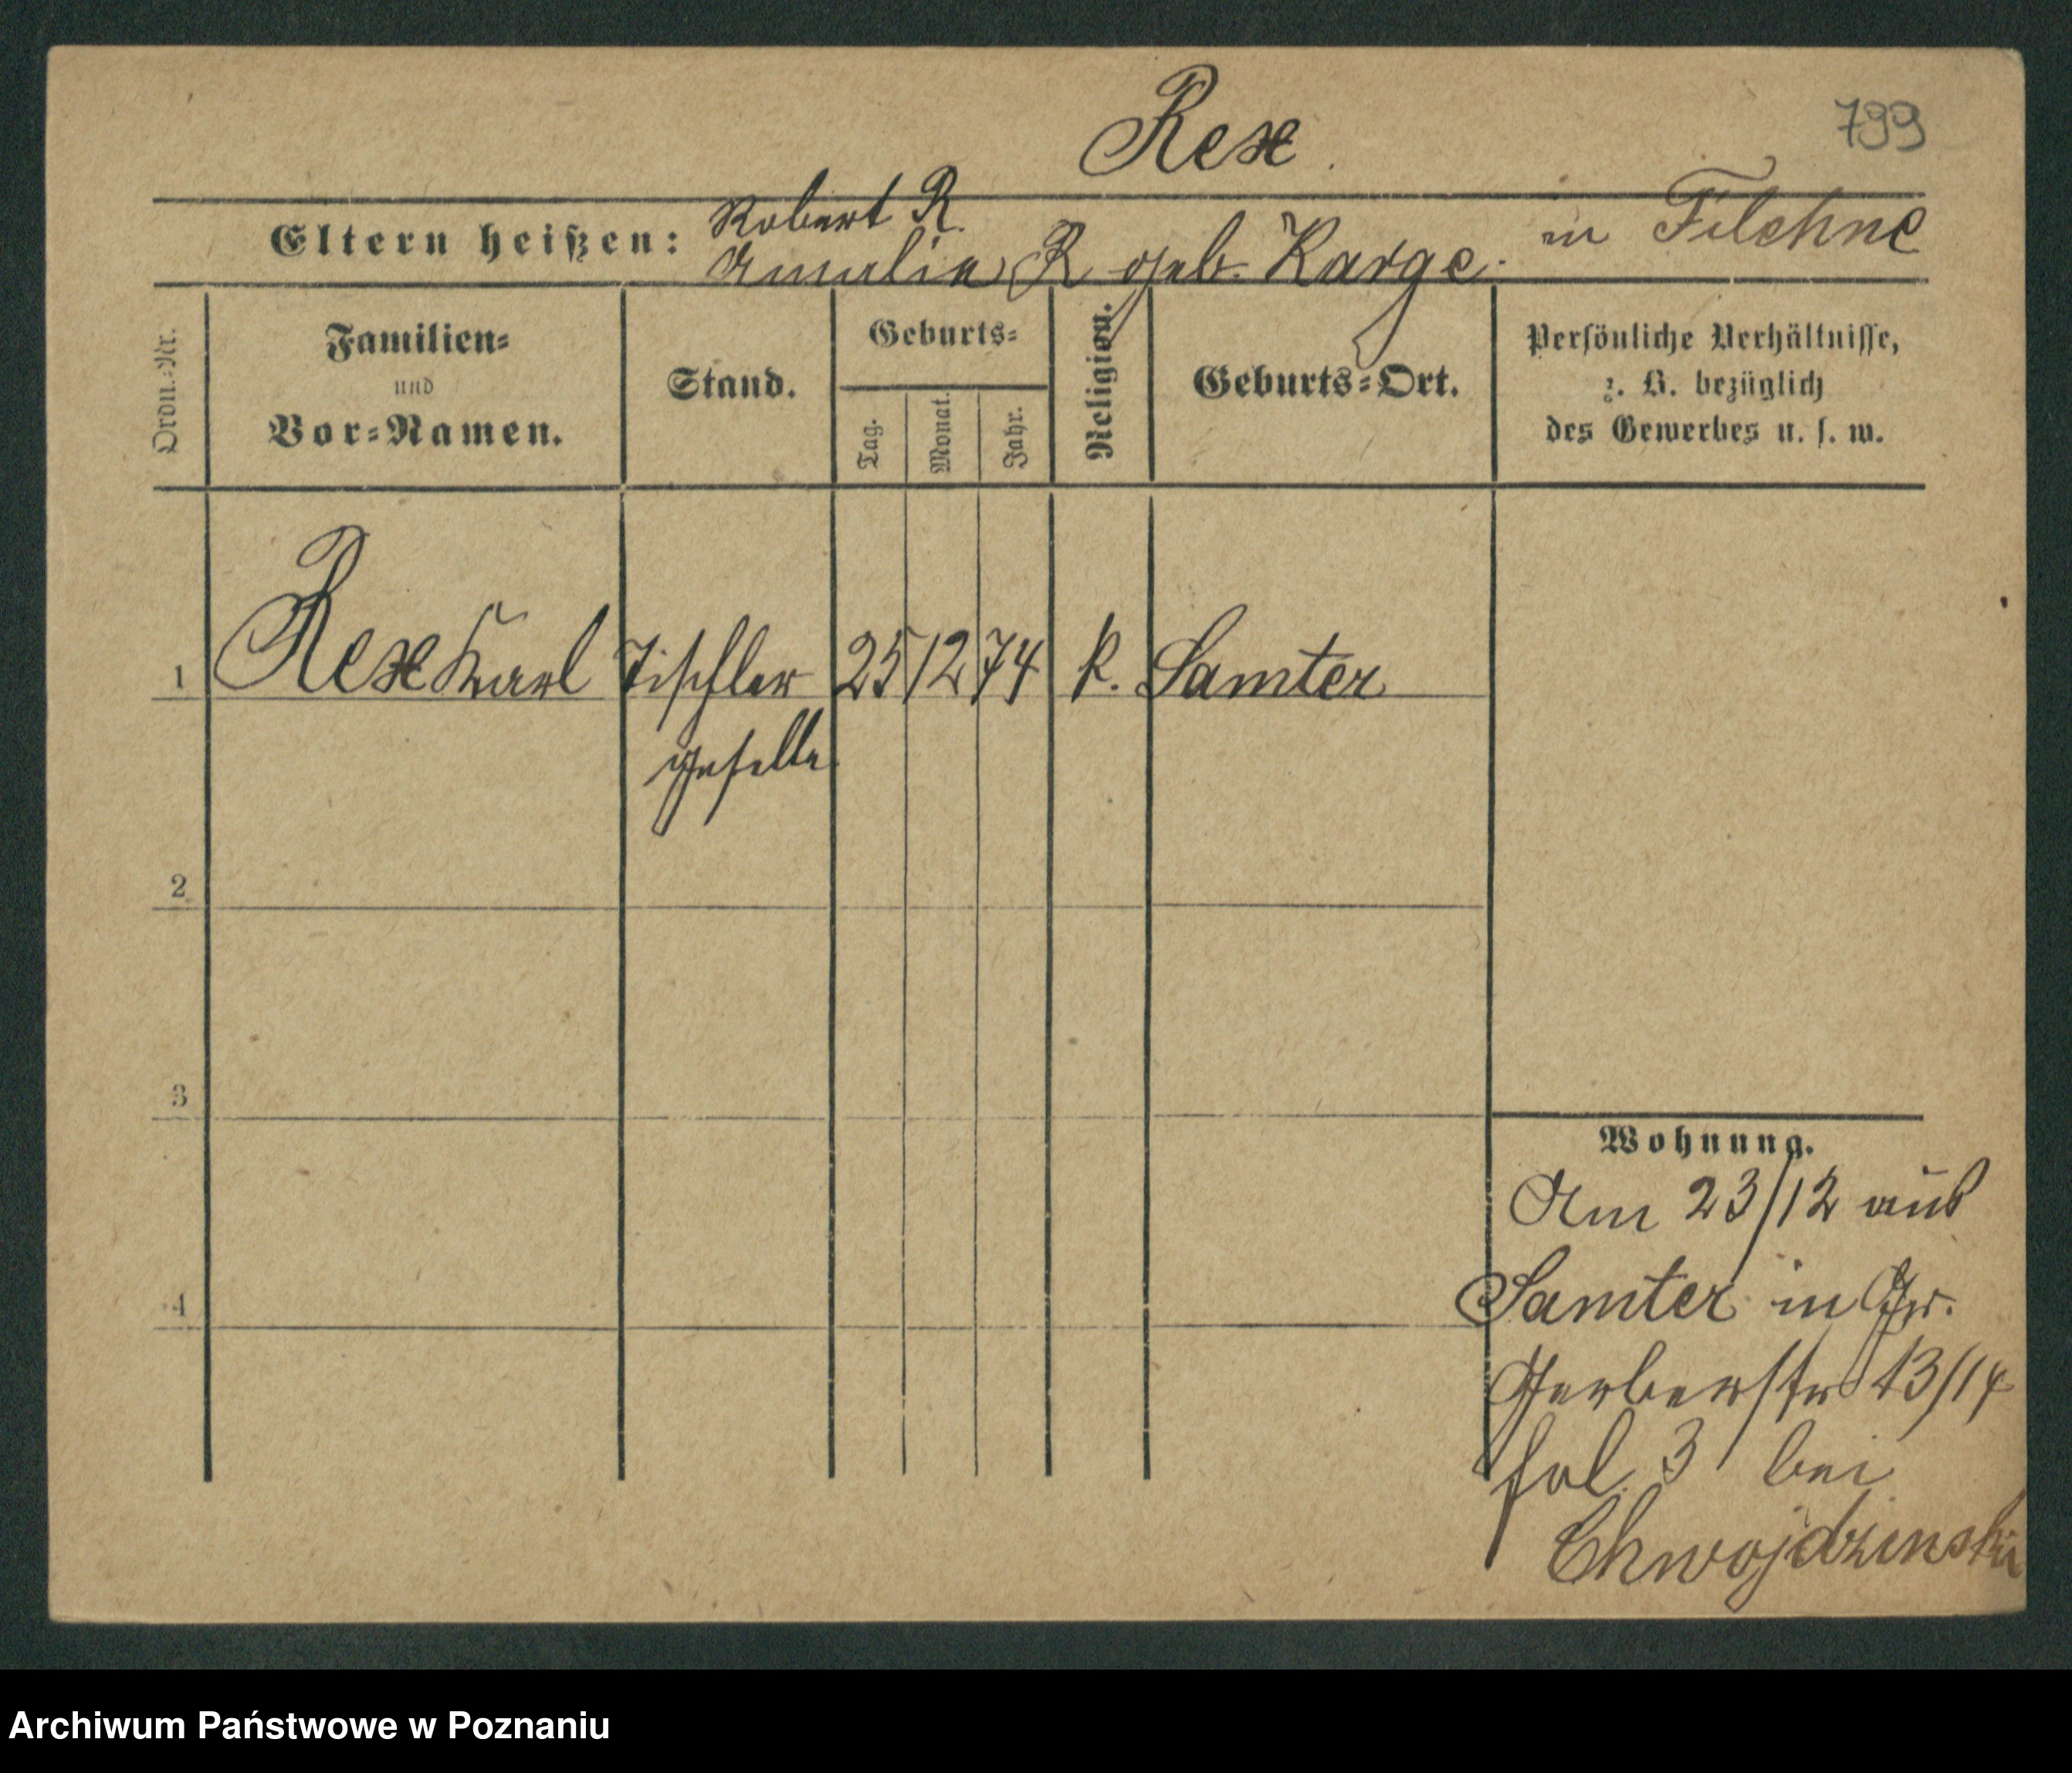 Rex.
799
Robert R.
Eltern heißen: Amalie R geb. Karge. in Filehne
Ordn.-Nr.
Familien-
und
Vor-Namen.
Stand.
Geburts-
Tag.
Monat.
Jahr.
Religion.
Geburts-Ort.
Persönliche Verhältnisse,
z. B. bezüglich
des Gewerbes u. s. w.
1 Rex Karl Tischler 25 12 74 k. Samter
geselle
2
3
4
Wohnung.
Am 23/12 aus
Samter in Gr.
Gerberstr 13/14
fol 3 bei
Chwojdzinski
Archiwum Państwowe w Poznaniu